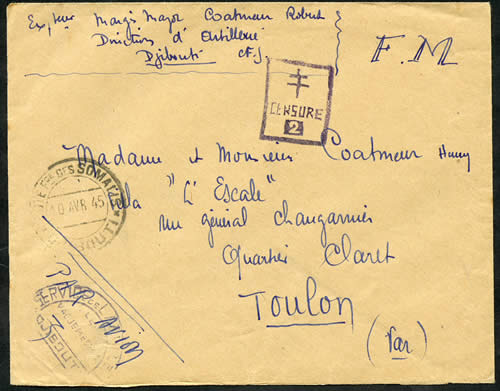 Exp, teur Margis Major Coatmeur Robert
Direction d'Artillerie
Djibouti CFS
F.M
CENSURE
2
Madame et Monsieur Coatmeur Henry
villa "L'Escale"
rue général changarnier
Quartier Claret
Toulon
(Var)
CÔTE FSE DES SOMALIS
0 AVR 45
DJIBOUTI
PAR AVION
SERVICE
DJIBOUTI